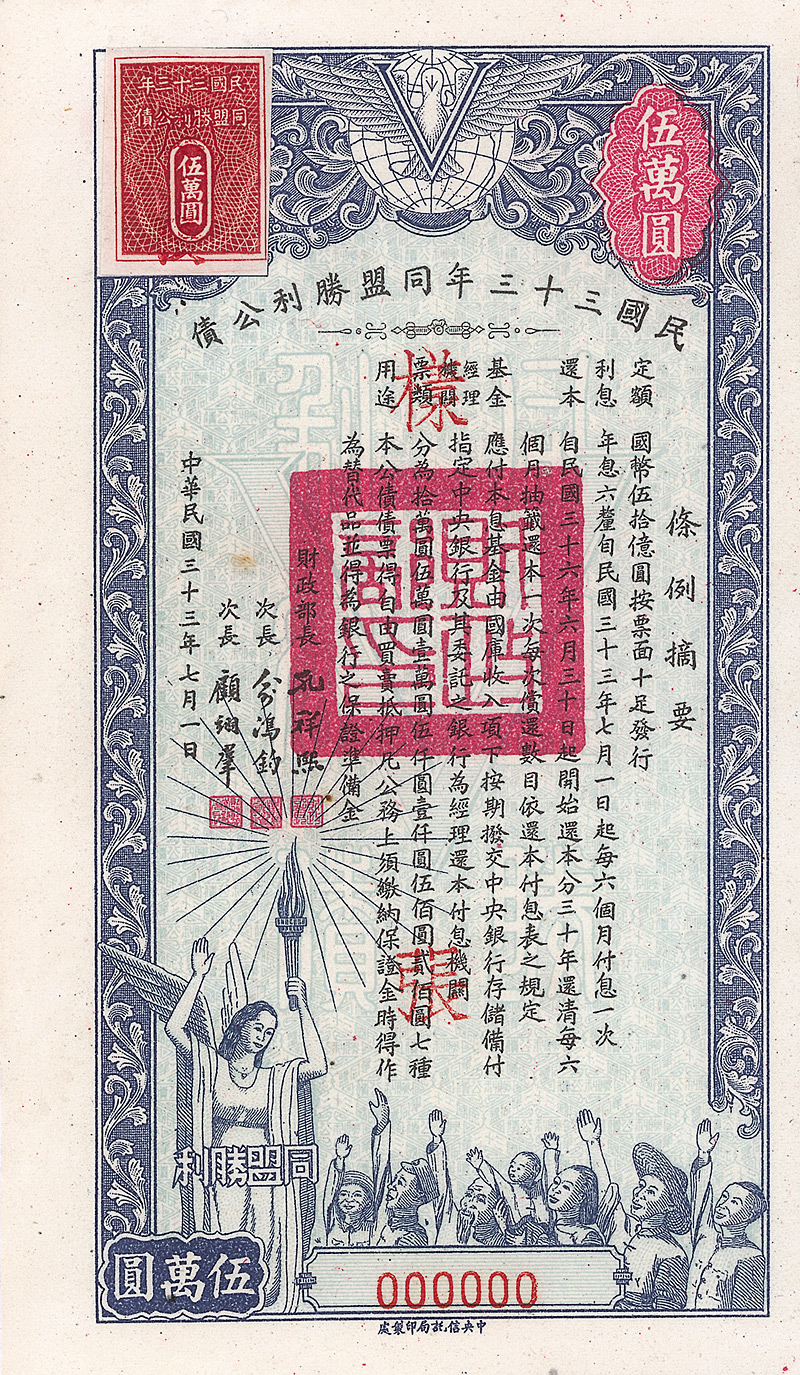 民國三十三年
同盟勝利公債
伍萬圓
伍萬圓
民國三十三年同盟勝利公債
條例摘要
定額 國幣伍拾億圓按票面十足發行
利息 年息六釐自民國三十三年七月一日起每六個月付息一次
還本 自民國三十六年六月三十日起開始還本分三十年還清每六
個月抽籤還本一次每次償還數目依還本付息表之規定
基金 應付本息基金由國庫收入項下按期撥交中央銀行存儲備付
經理機關 指定中央銀行及其委託之銀行為經理還本付息機關
票類 分為拾萬圓伍萬圓壹萬圓伍仟圓壹仟圓伍佰圓貳佰圓七種
用途 本公債債票得自由買賣抵押凡公務上須繳納保證金時得作
為替代品並得為銀行之保證準備金
樣張
財政部長 孔祥熙
次長 俞鴻鈞
次長 顧翊羣
中華民國三十三年七月一日
同盟勝利
伍萬圓
000000
中央信託局印製處